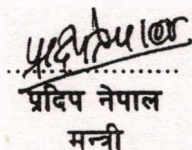 प्रदिप नेपाल
मन्त्री